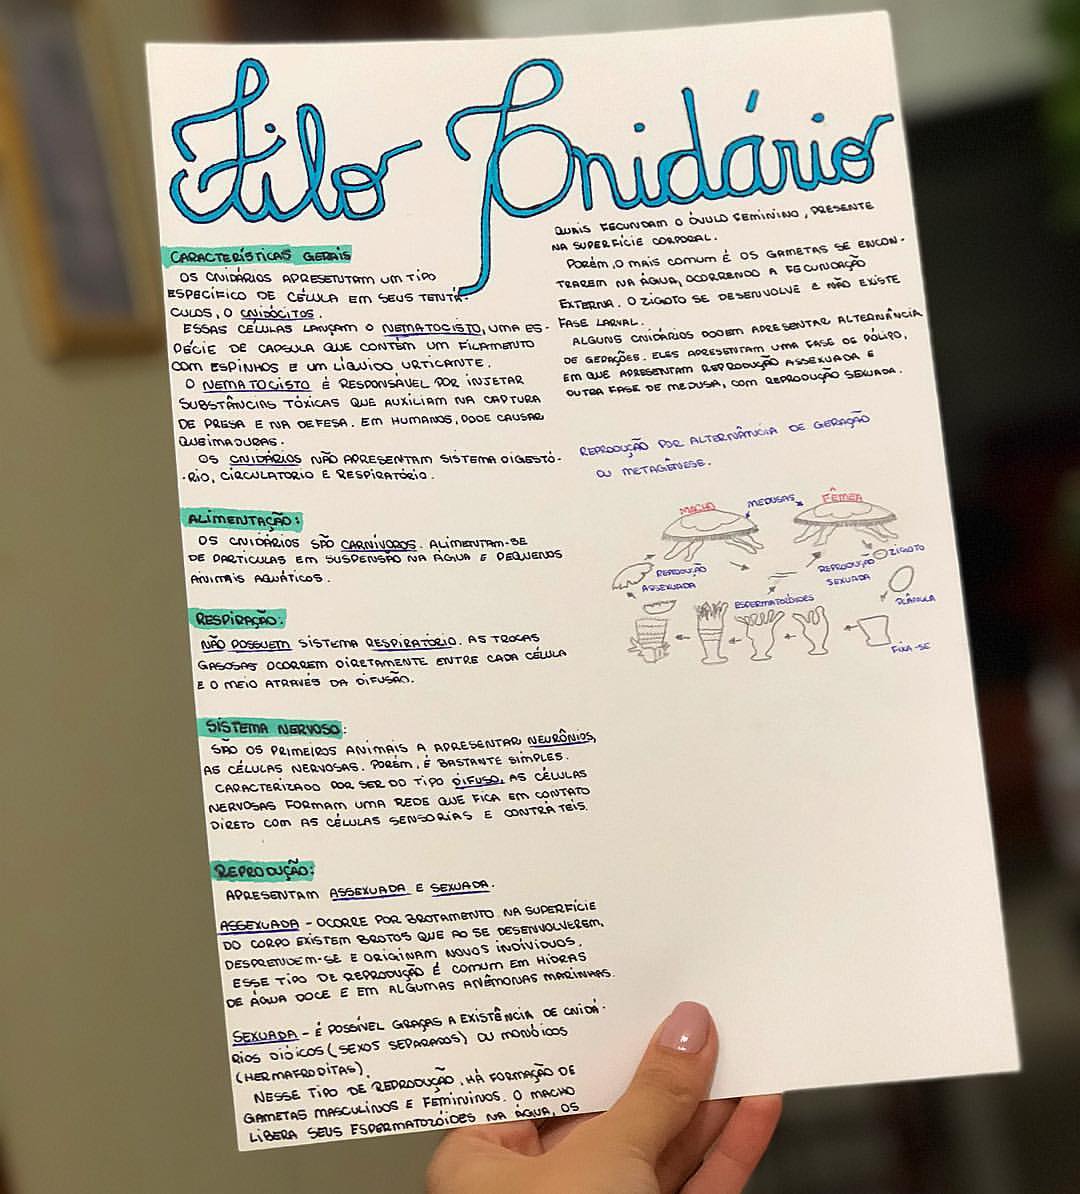 Filo Cnidário
CARACTERÍSTICAS GERAIS
OS CNIDÁRIOS APRESENTAM UM TIPO
ESPECÍFICO DE CÉLULA EM SEUS TENTÁ-
CULOS, O CNIDÓCITOS.
ESSAS CÉLULAS LANÇAM O NEMATOCISTO, UMA ES-
PÉCIE DE CAPSULA QUE CONTÉM UM FILAMENTO
COM ESPINHOS E UM LÍQUIDO URTICANTE.
O NEMATOCISTO É RESPONSÁVEL POR INJETAR
SUBSTÂNCIAS TÓXICAS QUE AUXILIAM NA CAPTURA
DE PRESA E NA DEFESA. EM HUMANOS, PODE CAUSAR
QUEIMADURAS.
OS CNIDÁRIOS NÃO APRESENTAM SISTEMA DIGESTÓ-
RIO, CIRCULATORIO E RESPIRATÓRIO.
ALIMENTAÇÃO:
OS CNIDÁRIOS SÃO CARNÍVOROS. ALIMENTAM-SE
DE PARTICULAS EM SUSPENSÃO NA ÁGUA E PEQUENOS
ANIMAIS AQUÁTICOS.
RESPIRAÇÃO:
NÃO POSSUEM SISTEMA RESPIRATÓRIO. AS TROCAS
GASOSAS OCORREM DIRETAMENTE ENTRE CADA CÉLULA
E O MEIO ATRAVÉS DA DIFUSÃO.
SISTEMA NERVOSO:
SÃO OS PRIMEIROS ANIMAIS A APRESENTAR NEURÔNIOS,
AS CÉLULAS NERVOSAS. PORÉM, É BASTANTE SIMPLES.
CARACTERIZADO POR SER DO TIPO DIFUSO, AS CÉLULAS
NERVOSAS FORMAM UMA REDE QUE FICA EM CONTATO
DIRETO COM AS CÉLULAS SENSORIAS E CONTRÁTEIS.
REPRODUÇÃO:
APRESENTAM ASSEXUADA E SEXUADA.
ASSEXUADA - OCORRE POR BROTAMENTO. NA SUPERFÍCIE
DO CORPO EXISTEM BROTOS QUE AO SE DESENVOLVEREM,
DESPRENDEM-SE E ORIGINAM NOVOS INDIVÍDUOS.
ESSE TIPO DE REPRODUÇÃO É COMUM EM HIDRAS
DE ÁGUA DOCE E EM ALGUMAS ANÊMONAS MARINHAS.
SEXUADA - É POSSÍVEL GRAÇAS A EXISTÊNCIA DE CNIDÁ-
RIOS DIÓICOS (SEXOS SEPARADOS) OU MONÓICOS
(HERMAFRODITAS).
NESSE TIPO DE REPRODUÇÃO, HÁ FORMAÇÃO DE
GAMETAS MASCULINOS E FEMININOS. O MACHO
LIBERA SEUS ESPERMATOZÓIDES NA ÁGUA, OS
QUAIS FECUNDAM O ÓVULO FEMININO, PRESENTE
NA SUPERFÍCIE CORPORAL.
PORÉM, O MAIS COMUM É OS GAMETAS SE ENCON-
TRAREM NA ÁGUA, OCORRENDO A FECUNDAÇÃO
EXTERNA. O ZIGOTO SE DESENVOLVE E NÃO EXISTE
FASE LARVAL.
ALGUNS CNIDÁRIOS PODEM APRESENTAR ALTERNÂNCIA
DE GERAÇÕES. ELES APRESENTAM UMA FASE DE PÓLIPO,
EM QUE APRESENTAM REPRODUÇÃO ASSEXUADA E
OUTRA FASE DE MEDUSA, COM REPRODUÇÃO SEXUADA.
REPRODUÇÃO POR ALTERNÂNCIA DE GERAÇÃO
OU METAGÊNESE.
MACHO
MEDUSAS
FÊMEA
REPRODUÇÃO
ASSEXUADA
ESPERMATOZÓIDES
REPRODUÇÃO
SEXUADA
ZIGOTO
PLÂNULA
FIXA-SE